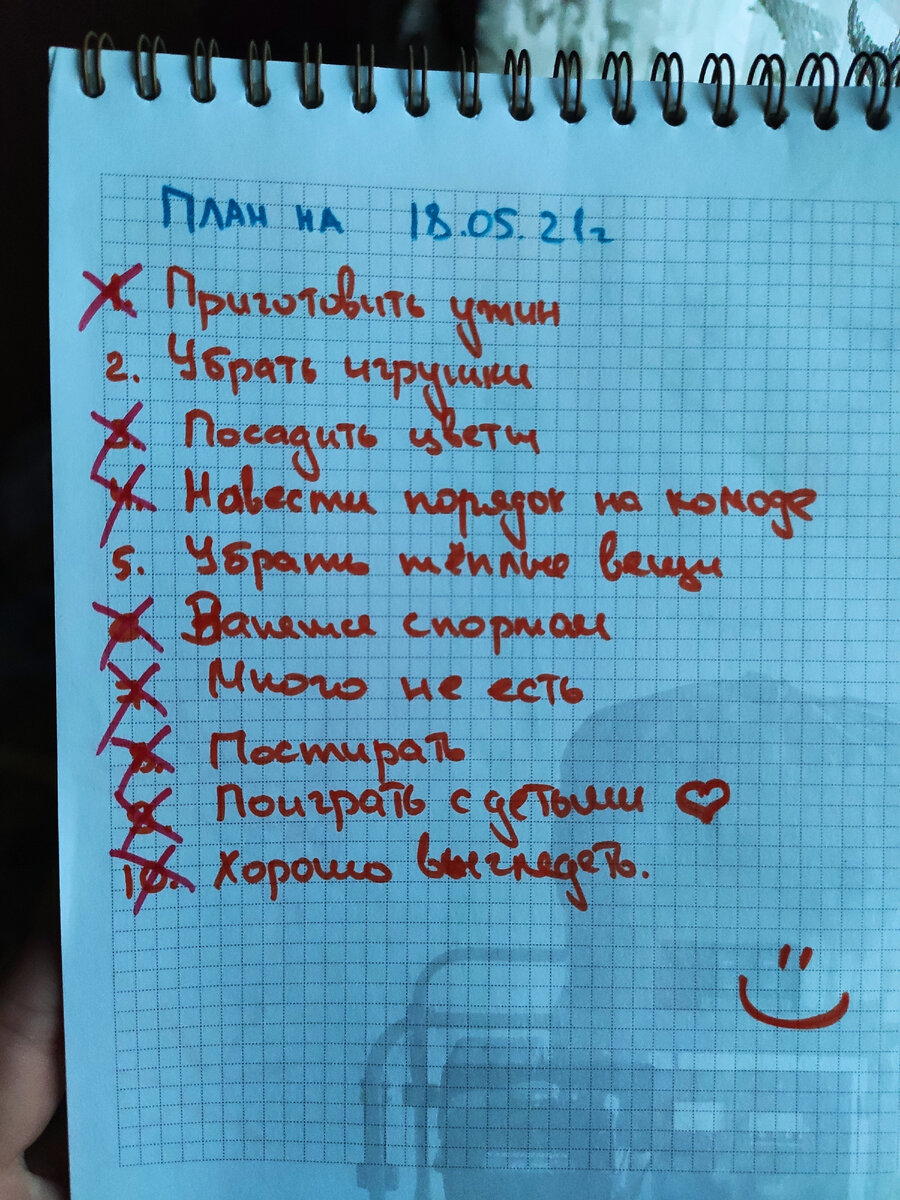 План на 18.05.21г
1. Приготовить ужин
2. Убрать игрушки
3. Посадить цветы
4. Навести порядок на комоде
5. Убрать тёплые вещи
Занятся спортом
7. Много не есть
8. Постирать
9. Поиграть с детьми
10. Хорошо выглядеть.